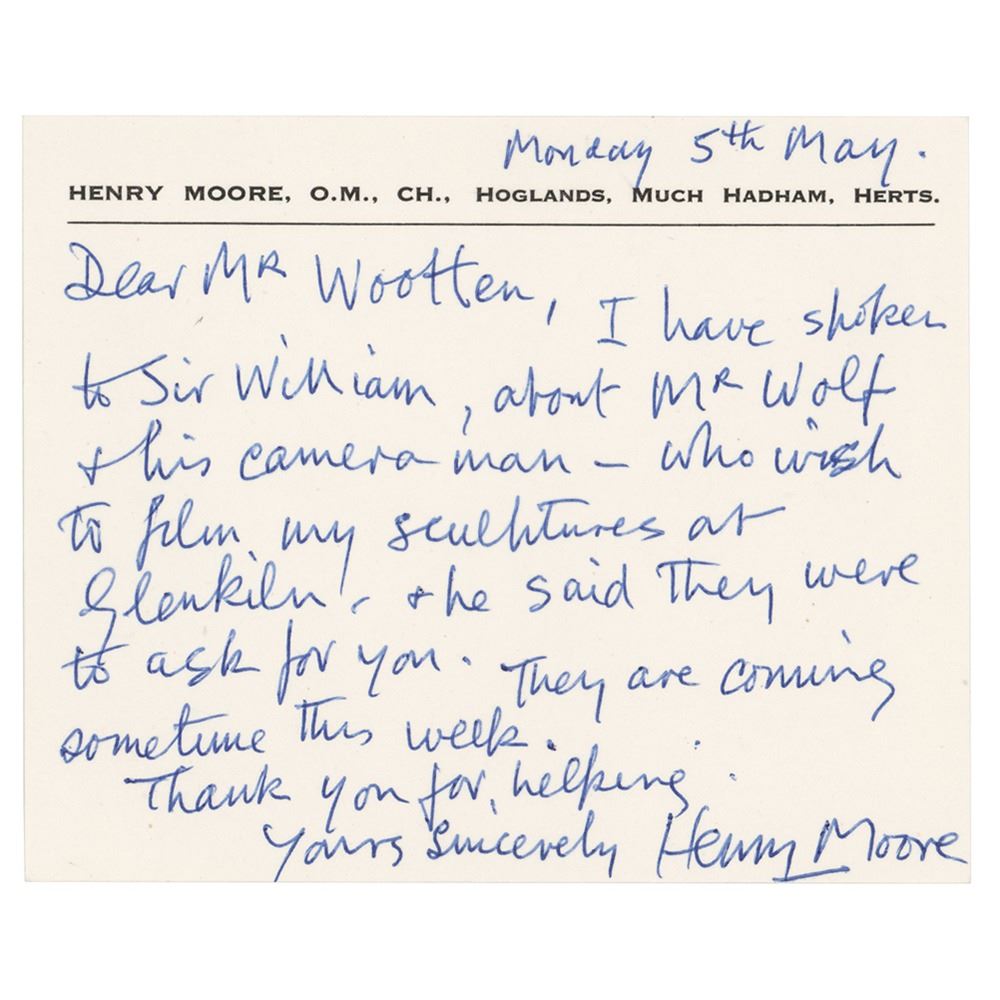 Monday 5th May.
HENRY MOORE, O.M., CH., HOGLANDS, MUCH HADHAM, HERTS.
Dear Mr Wootten,
I have spoken
to Sir William, about Mr Wolf
& his camera man – who wish
to film my sculptures at
Glenkiln, & he said they were
to ask for you. They are coming
sometime this week.
Thank you for helping.
Yours sincerely Henry Moore